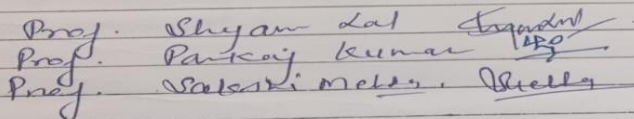 Prof. Shyam Lal
Prof. Pankaj Kumar
Prof. Sakshi Mehta.